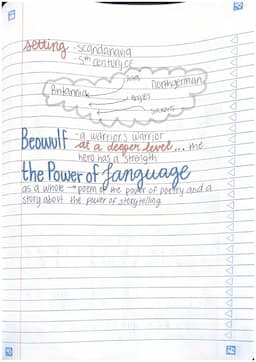 setting - scandanavia
- 5th century CE
Jutes
Britannica
Northgermany
Angles
saxons
Beowulf - a warrior's warrior
at a deeper level... the
hero has a strength
the Power of language
as a whole → poem of the power of poetry and a
story about the power of storytelling